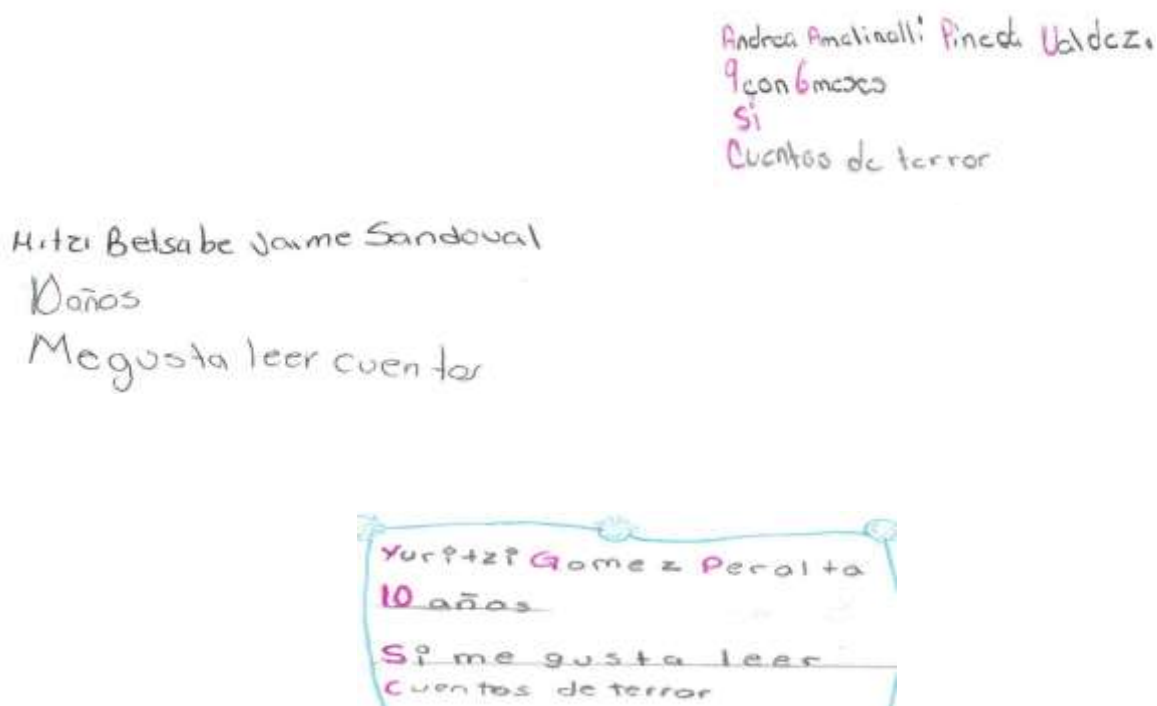 Andrea Amalinalli Pineda Valdez.
9 con 6 meses
Si
Cuentos de terror
Mitzi Betsabe Jaime Sandoval
10 años
Me gusta leer cuentos
Yuritzi Gomez Peralta
10 años
Si me gusta leer
Cuentos de terror